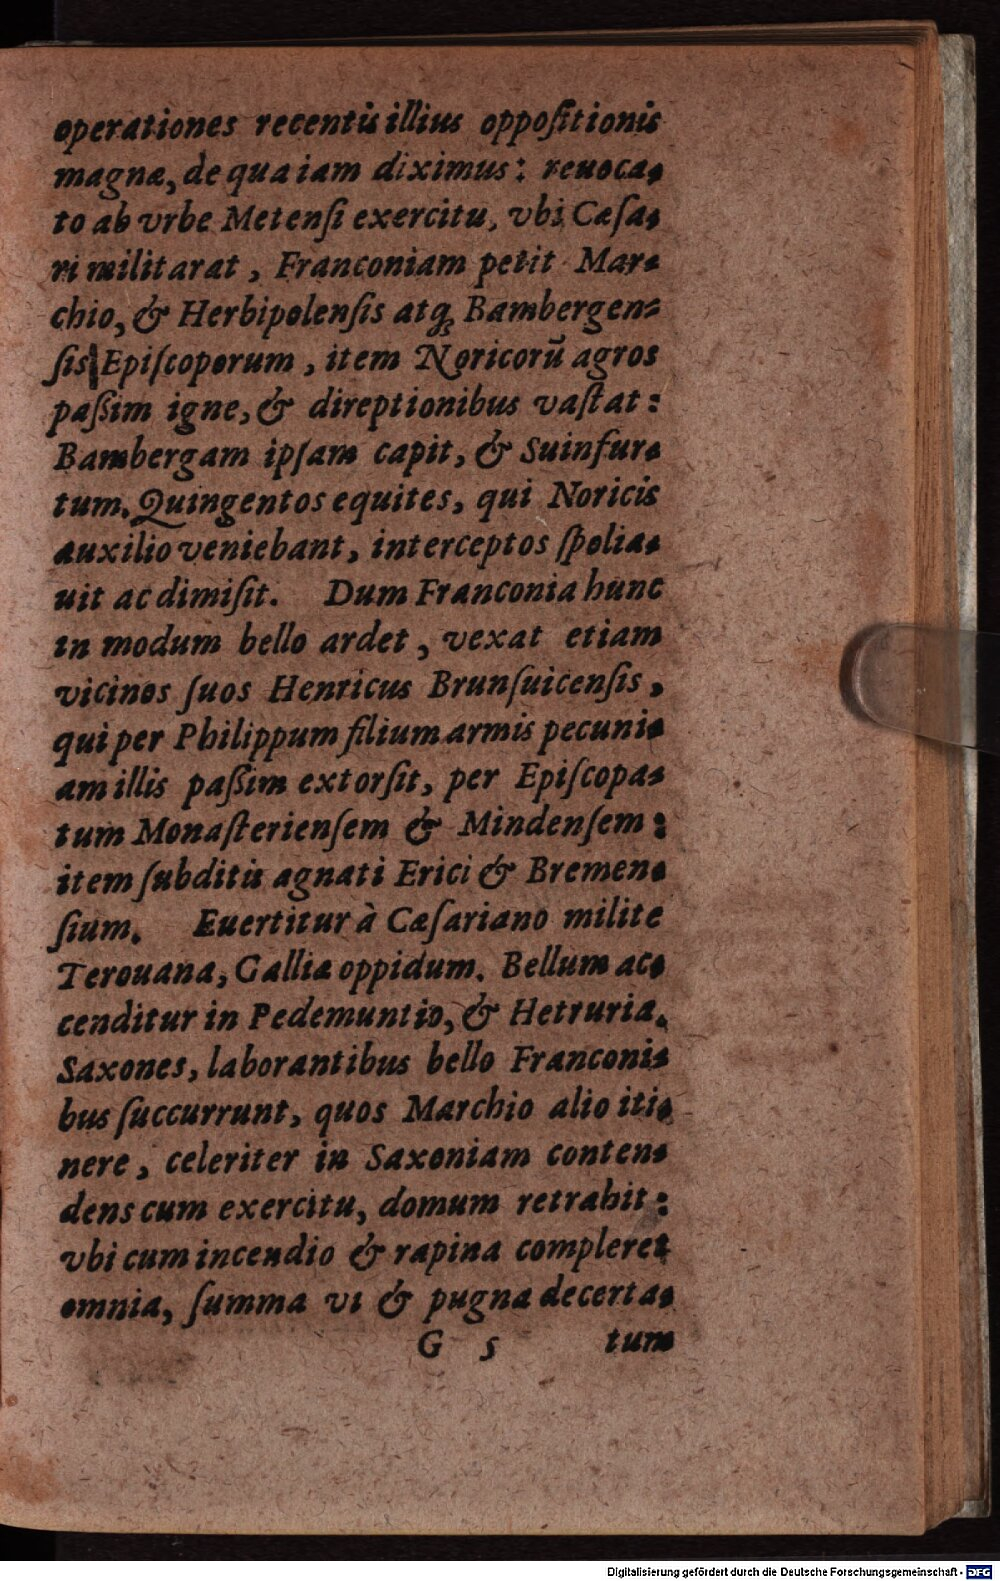 operationes recentis illius oppoſitionis
magnæ, de qua iam diximus: reuoca-
to ab vrbe Metenſi exercitu, vbi Cæſa-
ri militarat, Franconiam petit Mar-
chio, & Herbipolenſis atq; Bambergen-
ſis Epiſcoporum, item Noricorū agros
paßim igne, & direptionibus vaſtat:
Bambergam ipſam capit, & Suinfur-
tum. Quingentos equites, qui Noricis
auxilio veniebant, interceptos ſpolia-
uit ac dimiſit. Dum Franconia hunc
in modum bello ardet, vexat etiam
vicinos ſuos Henricus Brunſuicenſis,
qui per Philippum filium armis pecuni-
am illis paßim extorſit, per Epiſcopa-
tum Monaſterienſem & Mindenſem:
item ſubditis agnati Erici & Bremen-
ſium. Euertitur à Cæſariano milite
Terouana, Galliæ oppidum. Bellum ac-
cenditur in Pedemuntio, & Hetruria.
Saxones, laborantibus bello Franconi-
bus ſuccurrunt, quos Marchio alio iti-
nere, celeriter in Saxoniam conten-
dens cum exercitu, domum retrahit:
vbi cum incendio & rapina compleret
omnia, ſumma vi & pugna decerta-
G 5 tum
Digitalisierung gefördert durch die Deutsche Forschungsgemeinschaft - DFG